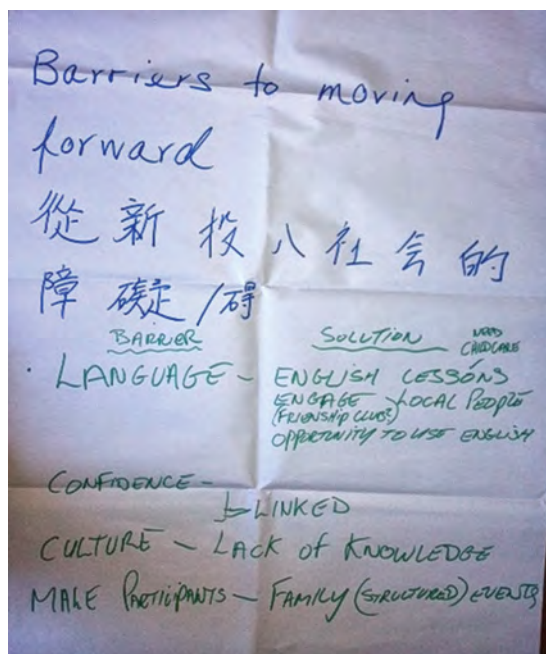 Barriers to moving
forward
從新投八社会的
障礙/碍
BARRIER SOLUTION NEED CHILDCARE
LANGUAGE - ENGLISH LESSONS
ENGAGE LOCAL PEOPLE
(FRIENSHIP CLUBS)
OPPORTUNITY TO USE ENGLISH
CONFIDENCE -
LINKED
CULTURE - LACK OF KNOWLEDGE
MALE PARTICIPANTS - FAMILY (STRUCTURED) EVENTS